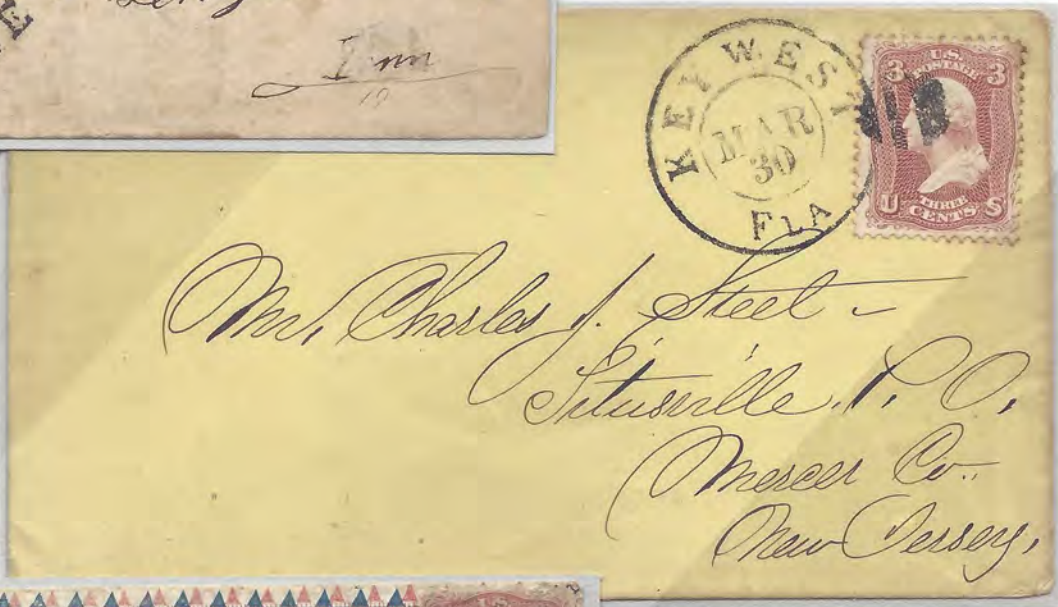 Tenn
KEY WEST
MAR
30
FLA
3 U.S. 3
POSTAGE
U THREE S
CENTS
Mr. Charles J. Steel -
Titusville, P. O.
Mercer Co.
New Jersey.